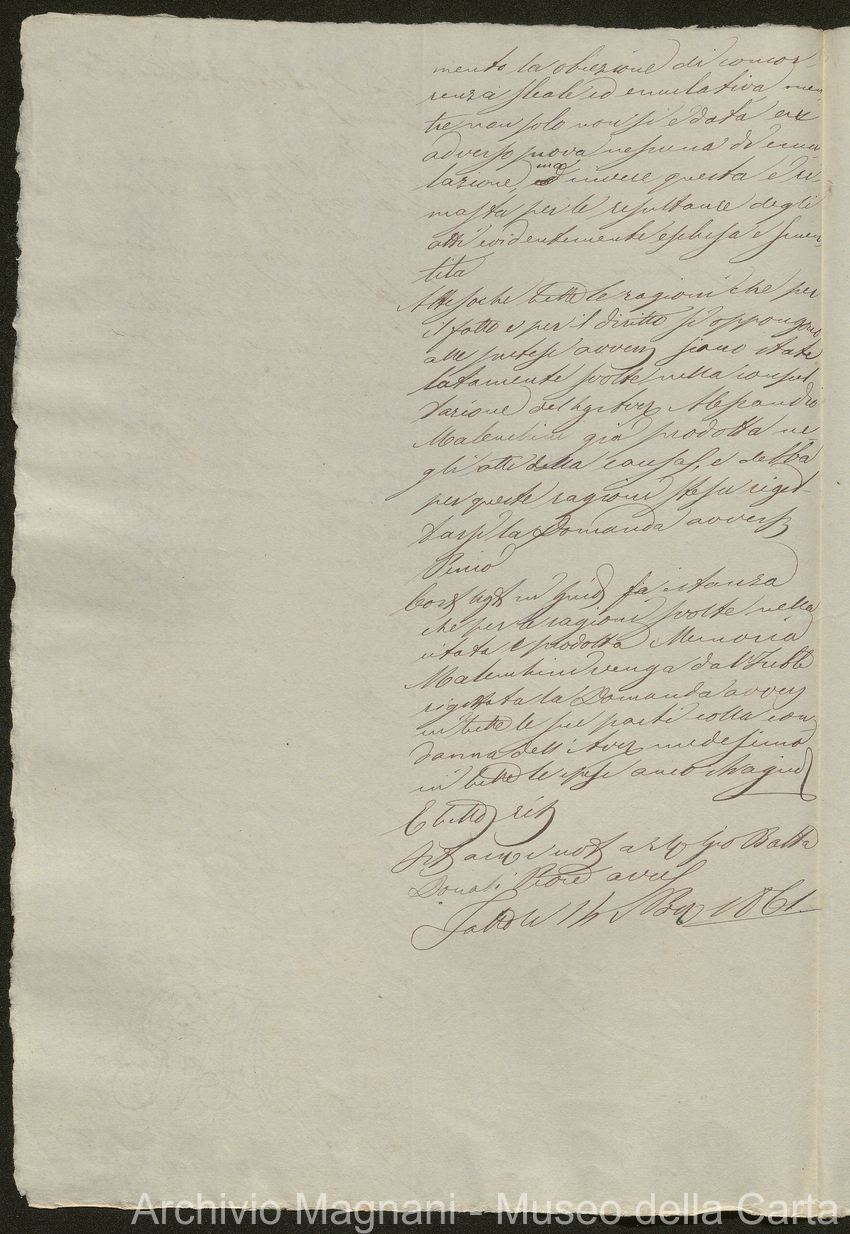 mento la obiezione di concor-
renza sleale ed emulativa men-
tre non solo non si è data ex
adverso prova nessuna di emu-
lazione, ma invece questa è ri-
masta per le resultanze degli
atti evidentemente esclusa e smen-
tita
Attesochè tutte le ragioni che per
il fatto e per il diritto si oppongono
alle pretese avverse siano state
latamente svolte nella consul-
tazione del Alessandro
Malenchini già prodotta ne-
gli atti della causa, e debba
per queste ragioni stesse riget-
tarsi la Domanda avversa
Perciò
fa istanza
che per le ragioni svolte nella
citata e prodotta Memoria
Malenchini venga dal Trible
rigettata la Domanda avversa
in tutte le sue parti colla con-
danna dell' medesimo
in tutte le spese anco stragiud
E tutto
Gio Batta
Donati
Fatto li 14 1861.
Archivio Magnani - Museo della Carta